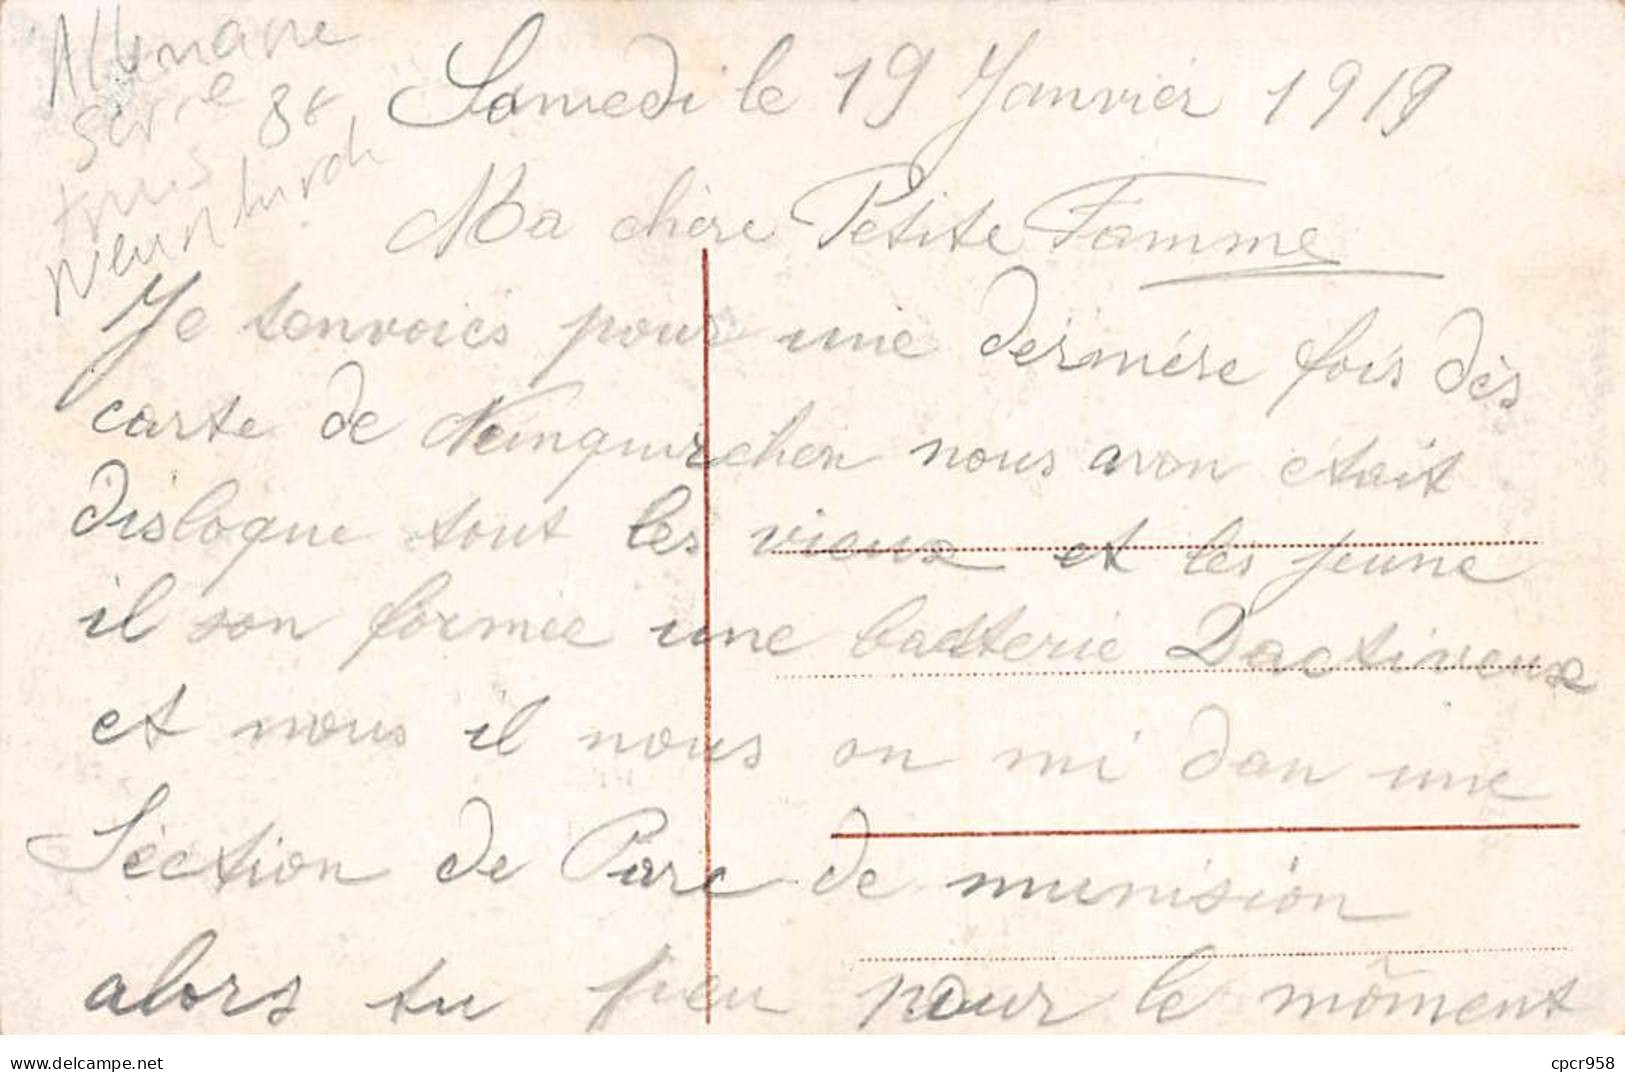 Allemagne
Serie 88
Neunkirch
Samedi le 19 Janvier 1919
Ma chère Petite Famme
Je tenvoies pour une dérniére fois dès
carte de Neunquirchen nous avon était
disloque tout les vieux et les jeune
il son formée une batterie Dactiveux
et nous il nous on mi dan une
Séction de Parc de munision
alors tu peu pour le môment
cpcr958